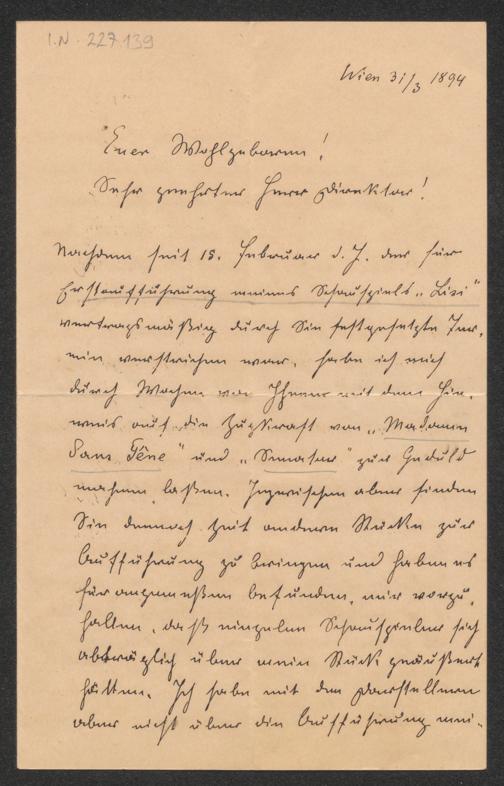 I.N. 227.139
Wien 31/3 1894
Euer Wohlgeboren!
Sehr geehrter Herr Direktor!
Nachdem seit 15. Februar d. J. der für
Erstaufführung meines Schauspiels „Lisi"
vertragsmäßig durch Sie festgesetzte Ter-
min verstrichen war, habe ich mich
durch Wochen von Ihnen mit dem Hin-
weis auf die Zugkraft von „Madame
Sans Gêne" und „Senator" zur Geduld
mahnen laßen. Inzwischen aber finden
Sie dennoch Zeit andere Stücke zur
Aufführung zu bringen und haben es
für angemeßen befunden, mir vorzu-
halten, daß einzelne Schauspieler sich
abträglich über mein Stück geäußert
hätten. Ich habe mit den Darstellern
aber nicht über die Aufführung mei-